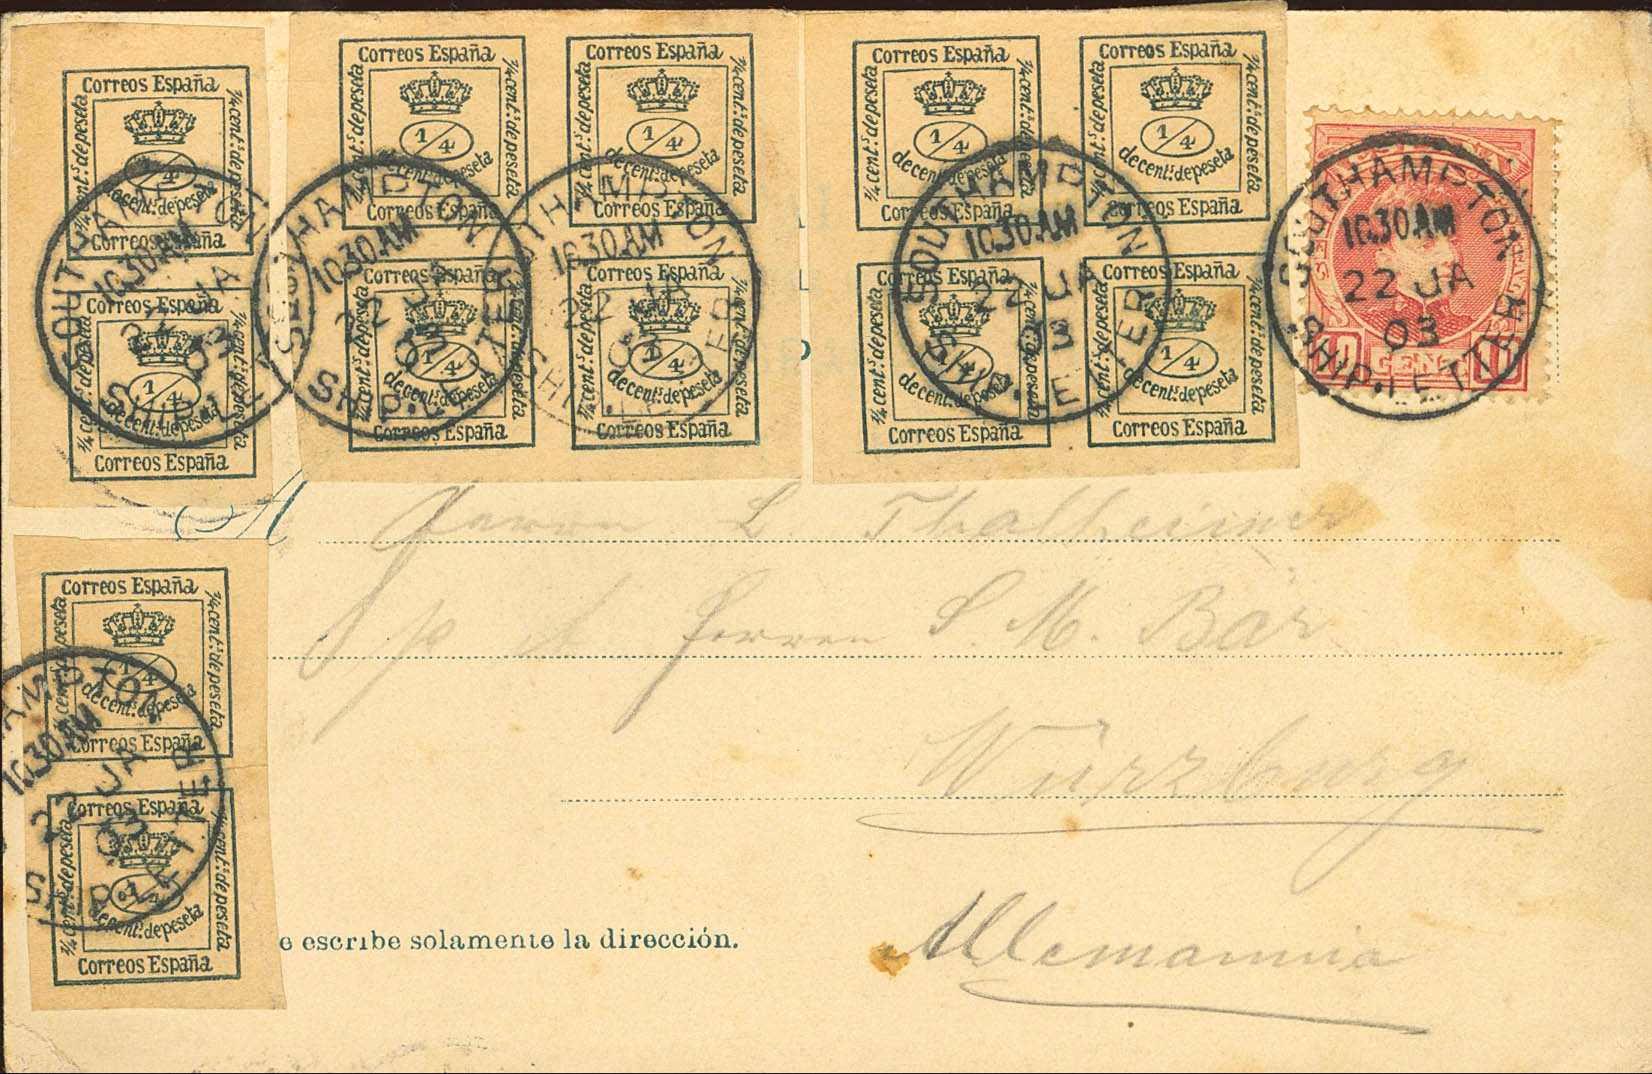 Correos España
¼ cent.ˢ de peseta
1/4
de cent.ˢ de peseta
¼ cent.ˢ de peseta
Correos España
SOUTHAMPTON
10.30 AM
22 JA
03
SHIP LETTER
10 CENT. 10
A
Herrn L. Thalheimer
p A. Herren S. M. Bär
Würzburg
Allemannia
e escribe solamente la dirección.